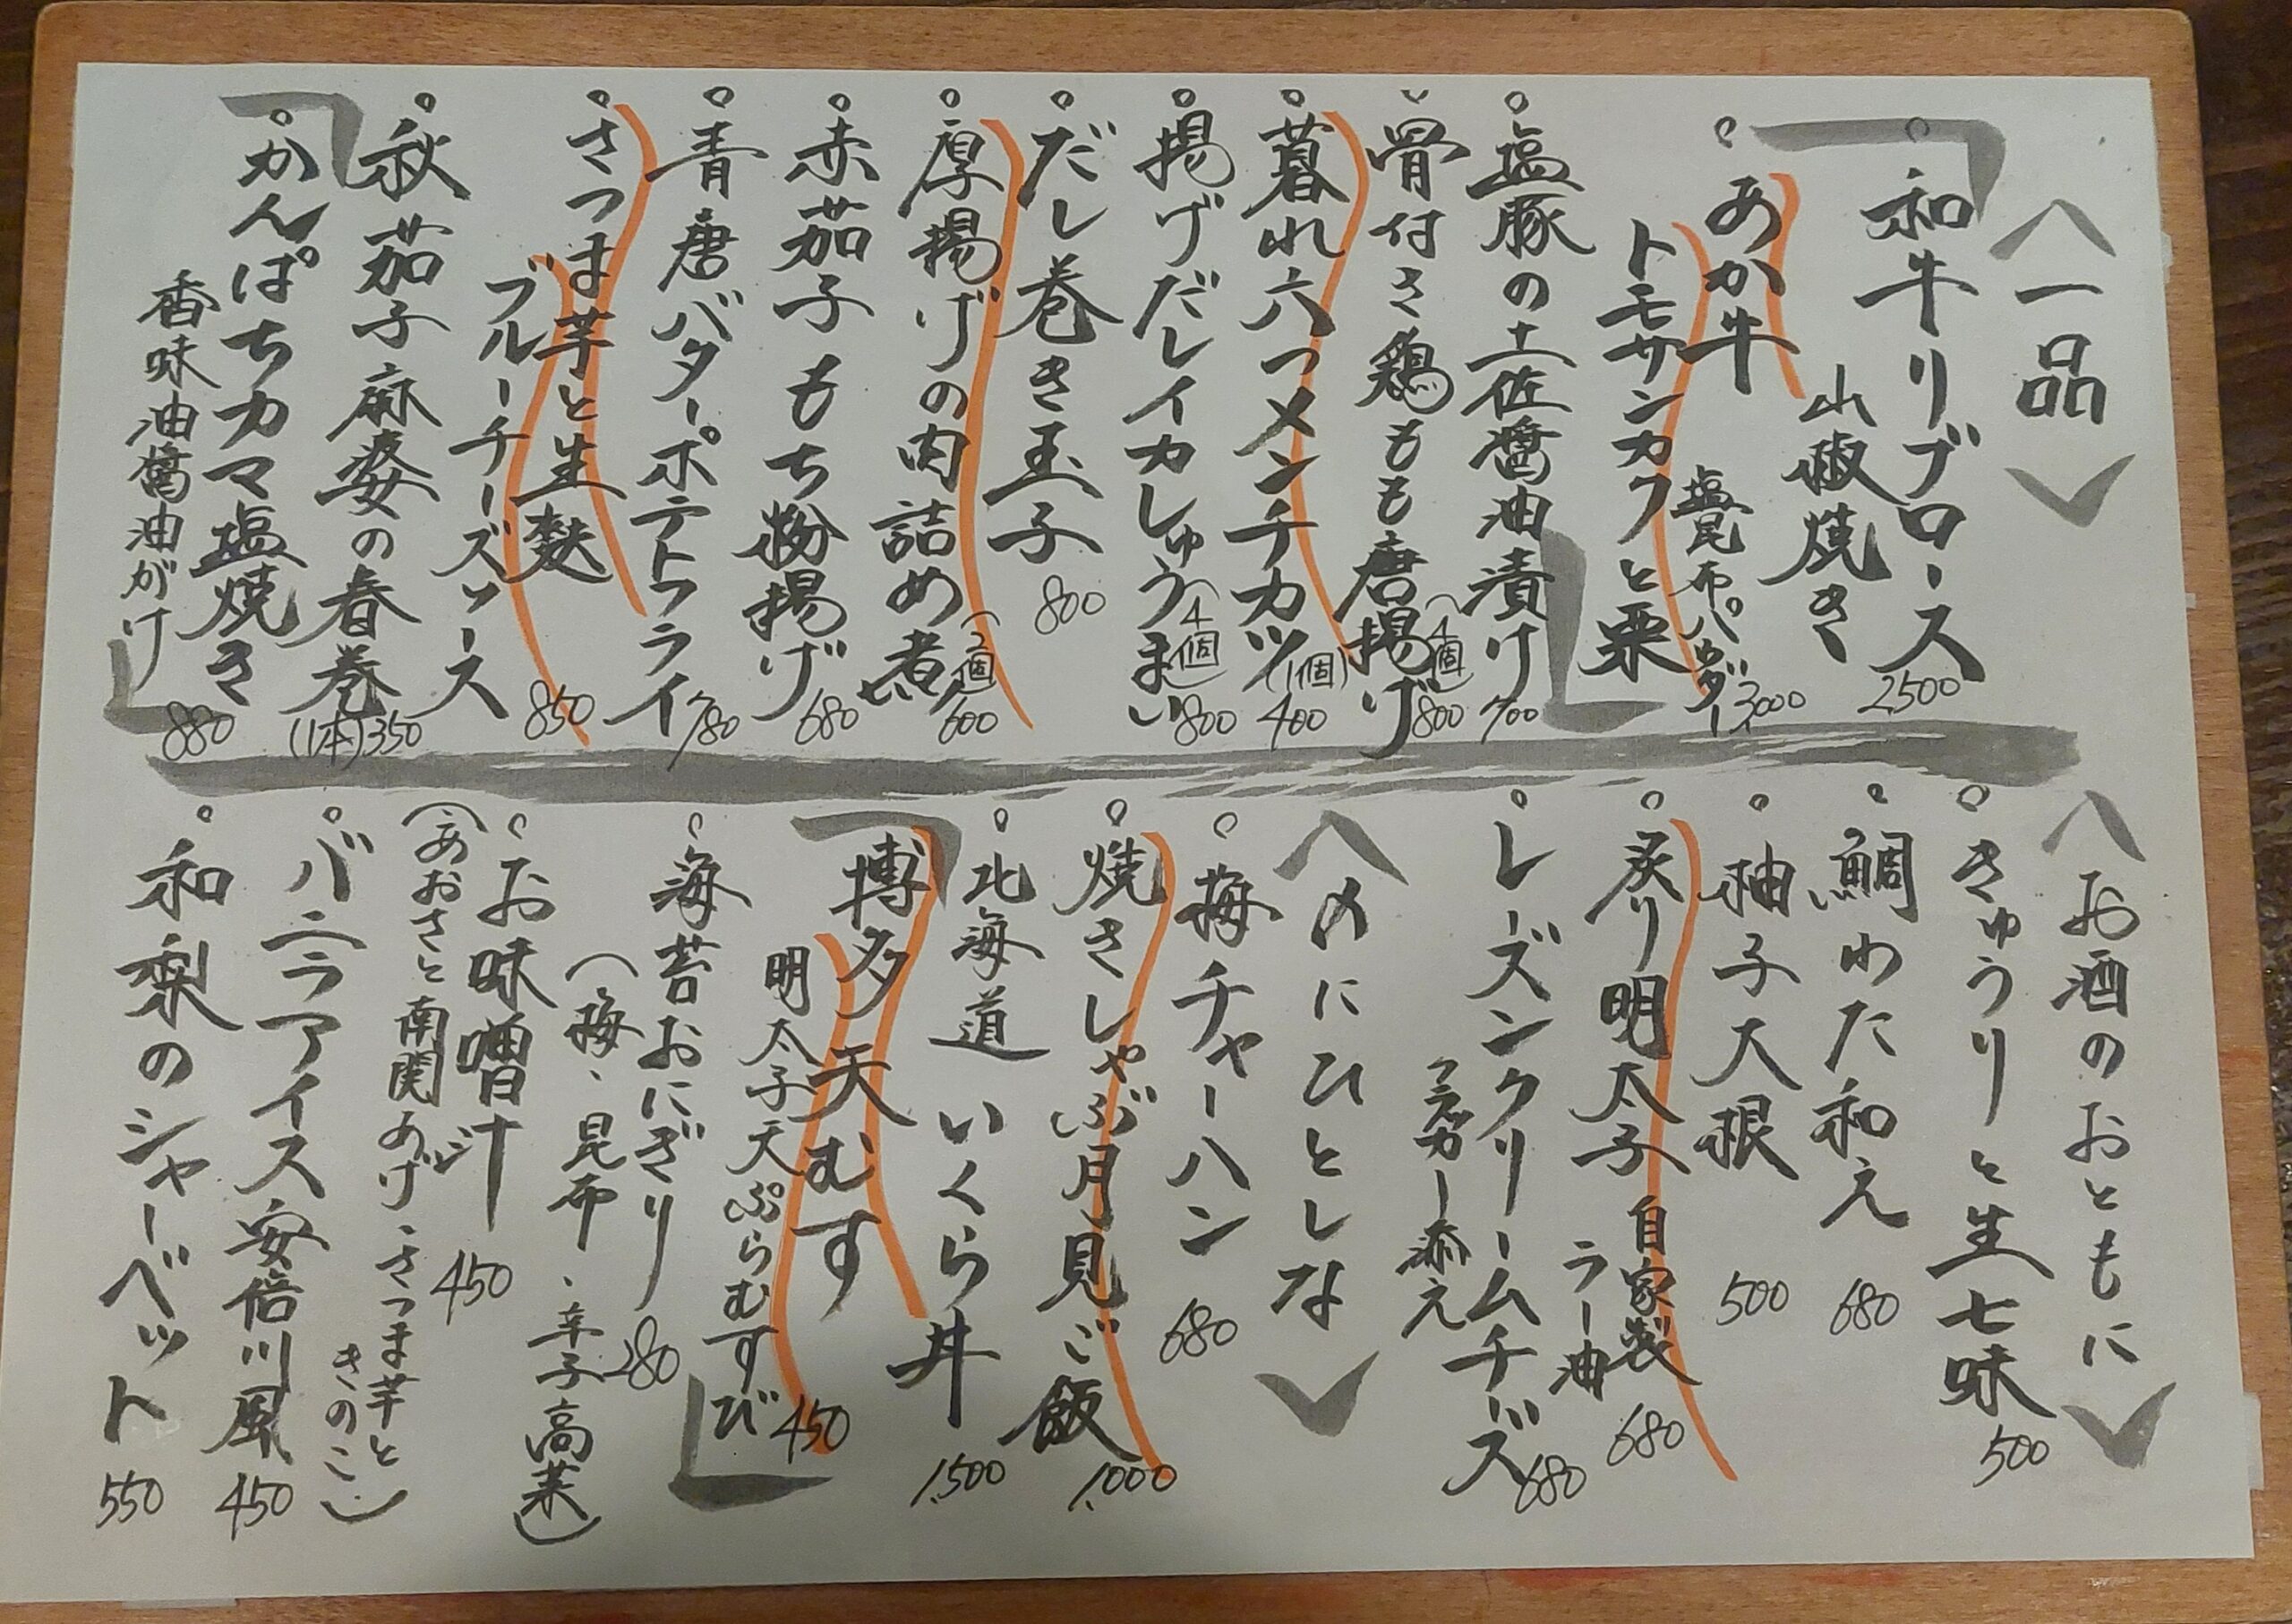 〈一品〉
和牛リブロース
山椒焼き
2,500
あか牛
トモサンカクと栗
塩昆布パウダー
3,000
塩豚の土佐醤油漬け
700
骨付き鶏もも唐揚げ
(4個)
800
暮れ六つメンチカツ
(1個)
400
揚げだしイカしゅうまい
(4個)
800
だし巻き玉子
800
厚揚げの肉詰め煮
(2個)
600
赤茄子もち粉揚げ
680
青唐バターポテトフライ
780
さつま芋と生麩
ブルーチーズソース
850
秋茄子麻婆の春巻
(1本)350
かんぱちカマ塩焼き
香味油醤油がけ
880
〈お酒のおともに〉
きゅうりと生七味
500
鯛わた和え
680
柚子大根
500
炙り明太子
自家製
ラー油
680
レーズンクリームチーズ
クラッカー添え
680
〈〆にひとしな〉
梅チャーハン
680
焼きしゃぶ月見ご飯
1,000
北海道いくら丼
1,500
博多天むす
明太子天ぷらむすび
450
海苔おにぎり
(梅、昆布、辛子高菜)
280
お味噌汁
450
(あおさと南関あげ、さつま芋ときのこ)
バニラアイス安倍川風
450
和梨のシャーベット
550